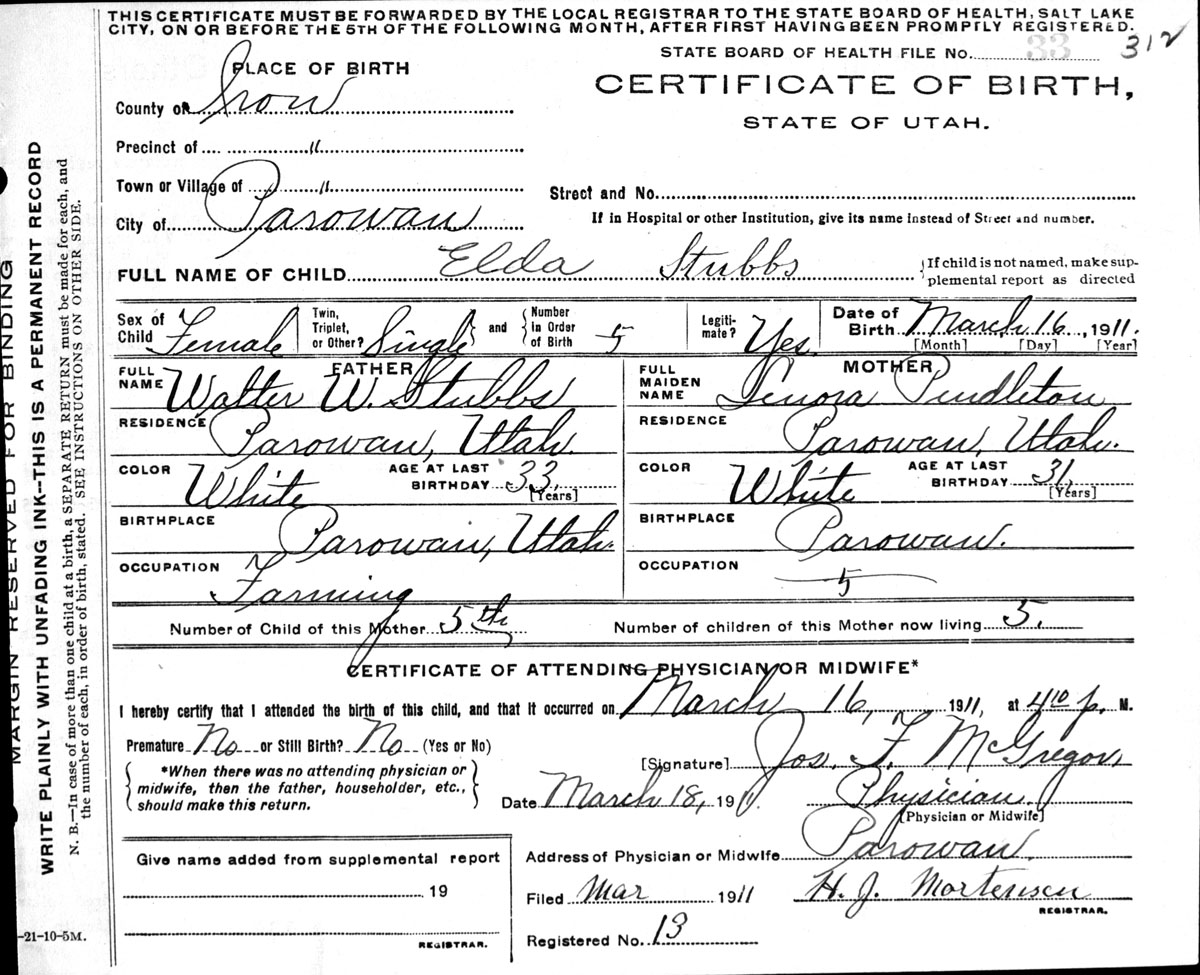 THIS CERTIFICATE MUST BE FORWARDED BY THE LOCAL REGISTRAR TO THE STATE BOARD OF HEALTH, SALT LAKE
CITY, ON OR BEFORE THE 5TH OF THE FOLLOWING MONTH, AFTER FIRST HAVING BEEN PROMPTLY REGISTERED.
STATE BOARD OF HEALTH FILE No. 33 312
PLACE OF BIRTH
CERTIFICATE OF BIRTH,
STATE OF UTAH.
County of Iron
Precinct of "
Town or Village of "
Street and No.
City of Parowan
If in Hospital or other Institution, give its name instead of Street and number.
FULL NAME OF CHILD Elda Stubbs
If child is not named, make sup-
plemental report as directed
Sex of Child Female
Twin, Triplet, or Other? Single
and Number in Order of Birth 5
Legiti-mate? Yes.
Date of Birth March 16, 1911.
[Month] [Day] [Year]
FATHER
FULL NAME Walter W. Stubbs
MOTHER
FULL MAIDEN NAME Lenora Pendleton
RESIDENCE Parowan, Utah.
RESIDENCE Parowan, Utah.
COLOR White AGE AT LAST BIRTHDAY 33. [Years]
COLOR White AGE AT LAST BIRTHDAY 31. [Years]
BIRTHPLACE Parowan, Utah.
BIRTHPLACE Parowan.
OCCUPATION Farming
OCCUPATION 5
Number of Child of this Mother 5th
Number of children of this Mother now living 5.
CERTIFICATE OF ATTENDING PHYSICIAN OR MIDWIFE*
I hereby certify that I attended the birth of this child, and that it occurred on March 16, 1911, at 4 10 p. M.
Premature No or Still Birth? No (Yes or No)
*When there was no attending physician or
midwife, then the father, householder, etc.,
should make this return.
[Signature] Jos. F. McGregor,
Date March 18, 1911. Physician.
[Physician or Midwife]
Give name added from supplemental report
19
REGISTRAR.
Address of Physician or Midwife Parowan.
Filed Mar 1911 H. J. Mortensen
REGISTRAR.
Registered No. 13
-21-10-5M.
MARGIN RESERVED FOR BINDING
WRITE PLAINLY WITH UNFADING INK—THIS IS A PERMANENT RECORD
N. B.—In case of more than one child at a birth, a SEPARATE RETURN must be made for each, and
the number of each, in order of birth, stated. SEE INSTRUCTIONS ON OTHER SIDE.